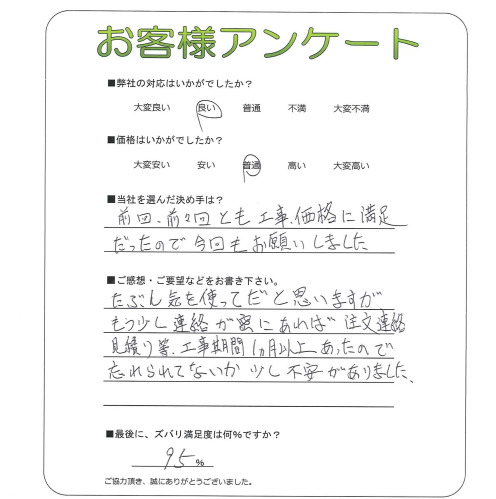 お客様アンケート
■弊社の対応はいかがでしたか？
大変良い 良い 普通 不満 大変不満
■価格はいかがでしたか？
大変安い 安い 普通 高い 大変高い
■当社を選んだ決め手は？
前回、前々回とも工事、価格に満足
だったので今回もお願いしました
■ご感想・ご要望などをお書き下さい。
たぶん気を使ってだと思いますが
もう少し連絡が密にあれば 注文連絡
見積り等、工事期間1ヵ月以上あったので
忘れられてないか少し不安がありました、
■最後に、ズバリ満足度は何％ですか？
95 %
ご協力頂き、誠にありがとうございました。